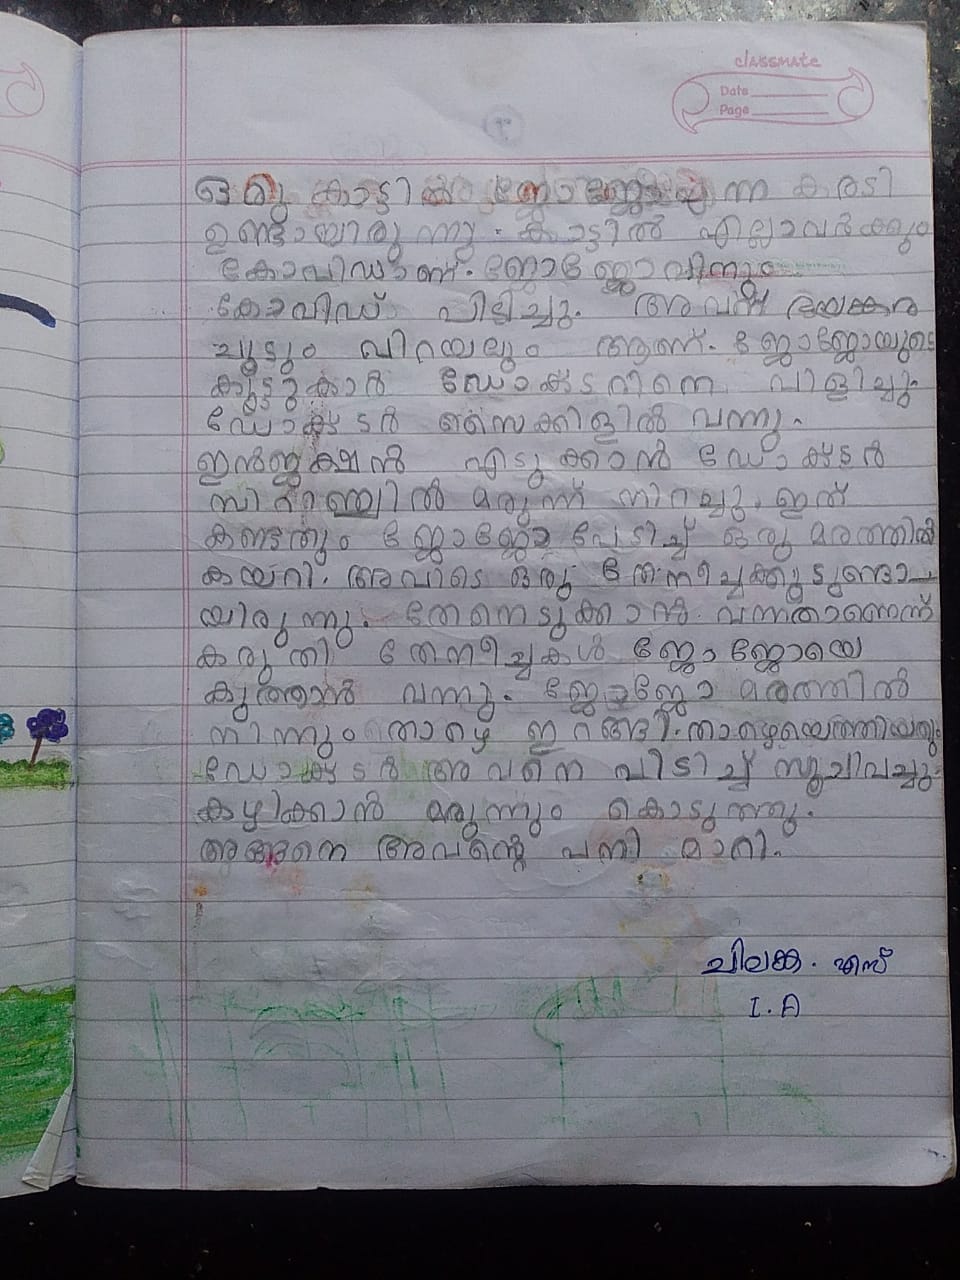 classmate
Date
Page
ഒരു കാട്ടിൽ ജോജോ എന്ന കരടി
ഉണ്ടായിരുന്നു. കാട്ടിൽ എല്ലാവർക്കും
കോവിഡാണ്. ജോജോവിനും
കോവിഡ് പിടിച്ചു. അവന് ഭയങ്കര
ചൂടും വിറയലും ആണ്. ജോജോയുടെ
കൂട്ടുകാർ ഡോക്ടറിനെ വിളിച്ചു.
ഡോക്ടർ സൈക്കിളിൽ വന്നു.
ഇൻജക്ഷൻ എടുക്കാൻ ഡോക്ടർ
സിറിഞ്ചിൽ മരുന്ന് നിറച്ചു. ഇത്
കണ്ടതും ജോജോ പേടിച്ച് ഒരു മരത്തിൽ
കയറി. അവിടെ ഒരു തേനീച്ചക്കൂടുണ്ടാ-
യിരുന്നു. തേനെടുക്കാൻ വന്നതാണെന്ന്
കരുതി തേനീച്ചകൾ ജോജോയെ
കുത്താൻ വന്നു. ജോജോ മരത്തിൽ
നിന്നും താഴെ ഇറങ്ങി. താഴെയെത്തിയതും
ഡോക്ടർ അവനെ പിടിച്ച് സൂചിവച്ചു.
കഴിക്കാൻ മരുന്നും കൊടുത്തു.
അങ്ങനെ അവന്റെ പനി മാറി.
ചിലങ്ക. എസ്
I. A